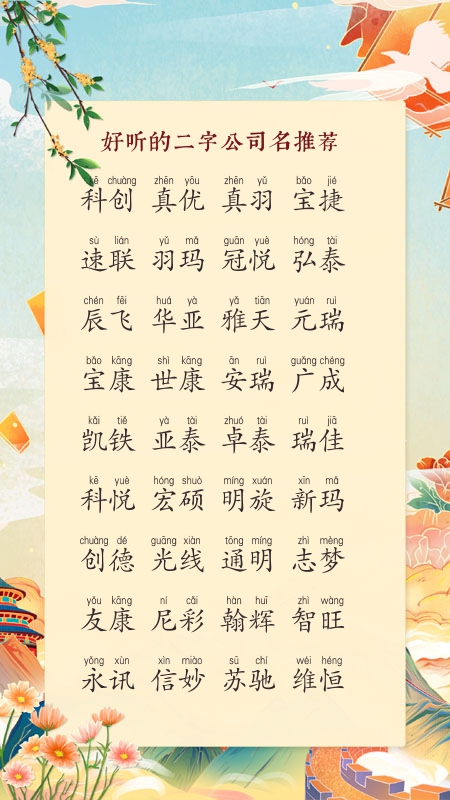 好听的二字公司名推荐
kē chuàng zhēn yōu zhēn yǔ bǎo jié
科创 真优 真羽 宝捷
sù lián yǔ mǎ guān yuè hóng tài
速联 羽玛 冠悦 弘泰
chén fēi huá yà yǎ tiān yuán ruì
辰飞 华亚 雅天 元瑞
bǎo kāng shì kāng ān ruì guǎng chéng
宝康 世康 安瑞 广成
kǎi tiě yà tài zhuó tài ruì jiā
凯铁 亚泰 卓泰 瑞佳
kē yuè hóng shuò míng xuán xīn mǎ
科悦 宏硕 明旋 新玛
chuàng dé guāng xiàn tōng míng zhì mèng
创德 光线 通明 志梦
yǒu kāng ní cǎi hàn huī zhì wàng
友康 尼彩 翰辉 智旺
yǒng xùn xìn miào sū chí wéi héng
永讯 信妙 苏驰 维恒